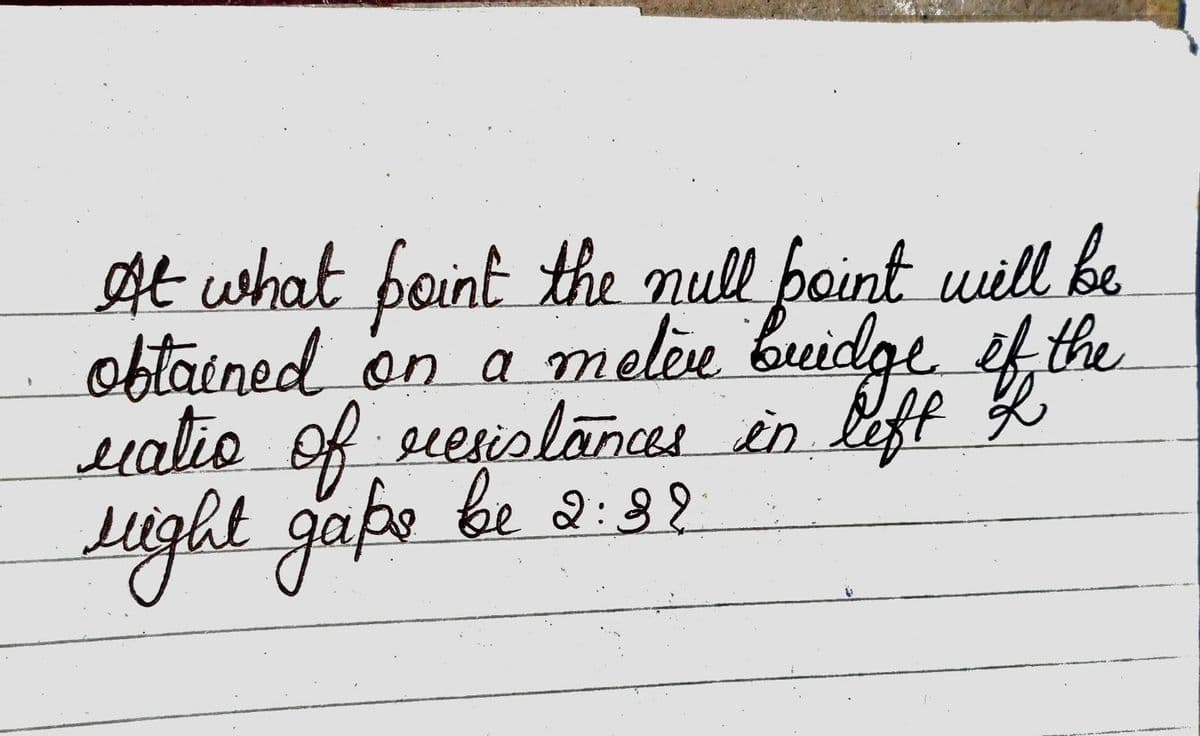 At what point the null point will be
obtained on a metre bridge if the
ratio of resistances in left &
right gaps be 2:3?